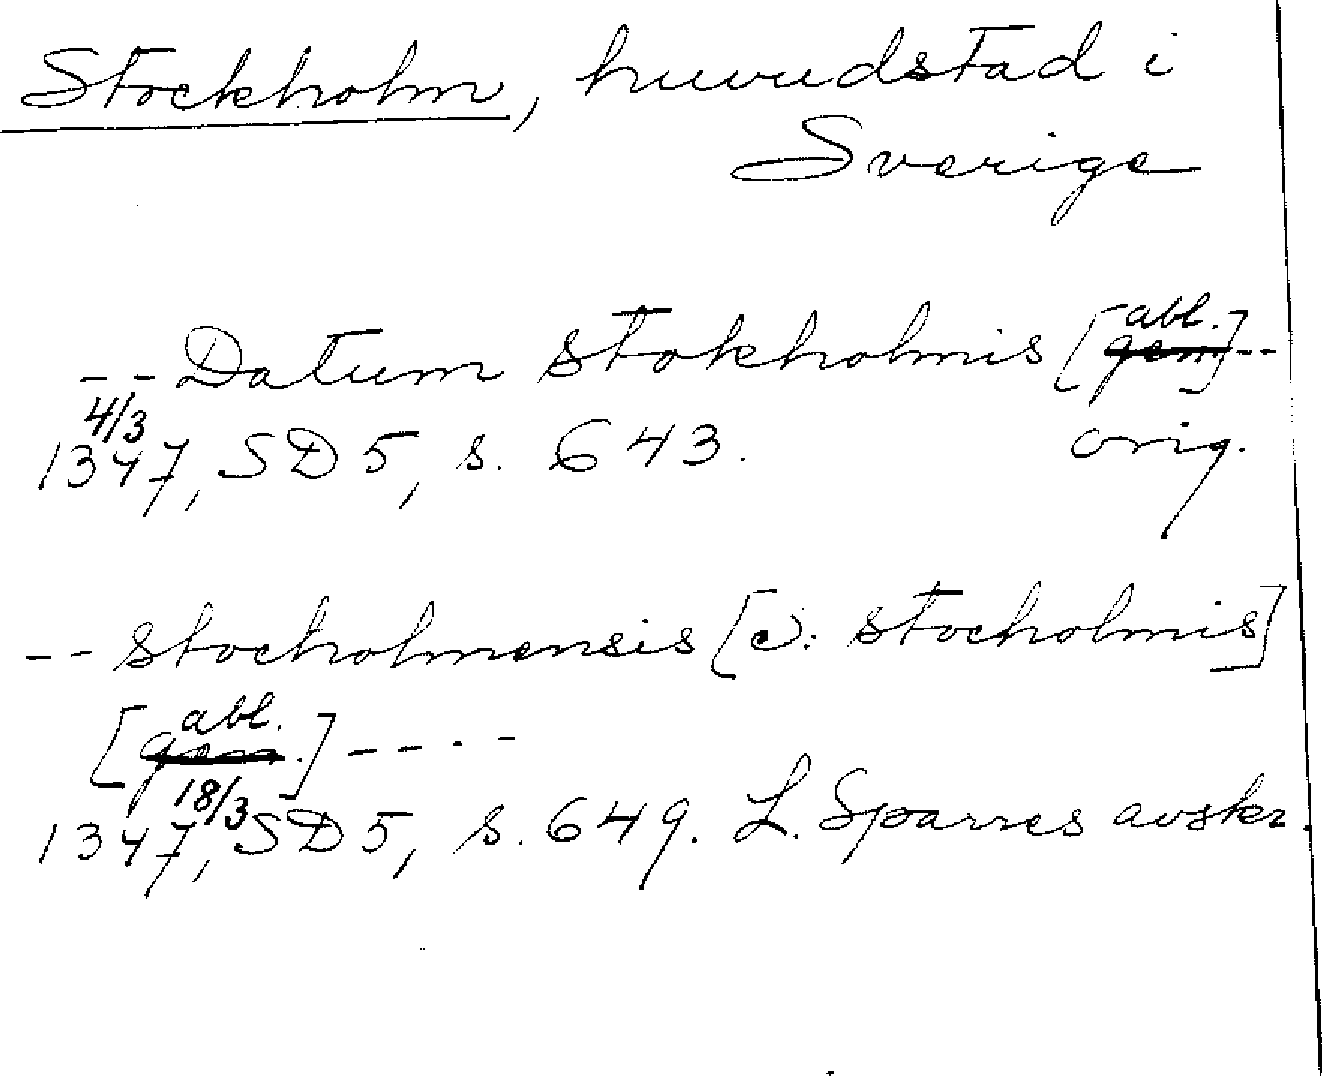 Stockholm, huvudstad i
Sverige
-- Datum stokholmis [abl.
gen]--
4/3
1347, SD 5, s. 643. orig.
-- stocholmensis [ɔ: stocholmis]
[abl.
gen.] ----
18/3
1347, SD 5, s. 649. L. Sparres avskr.